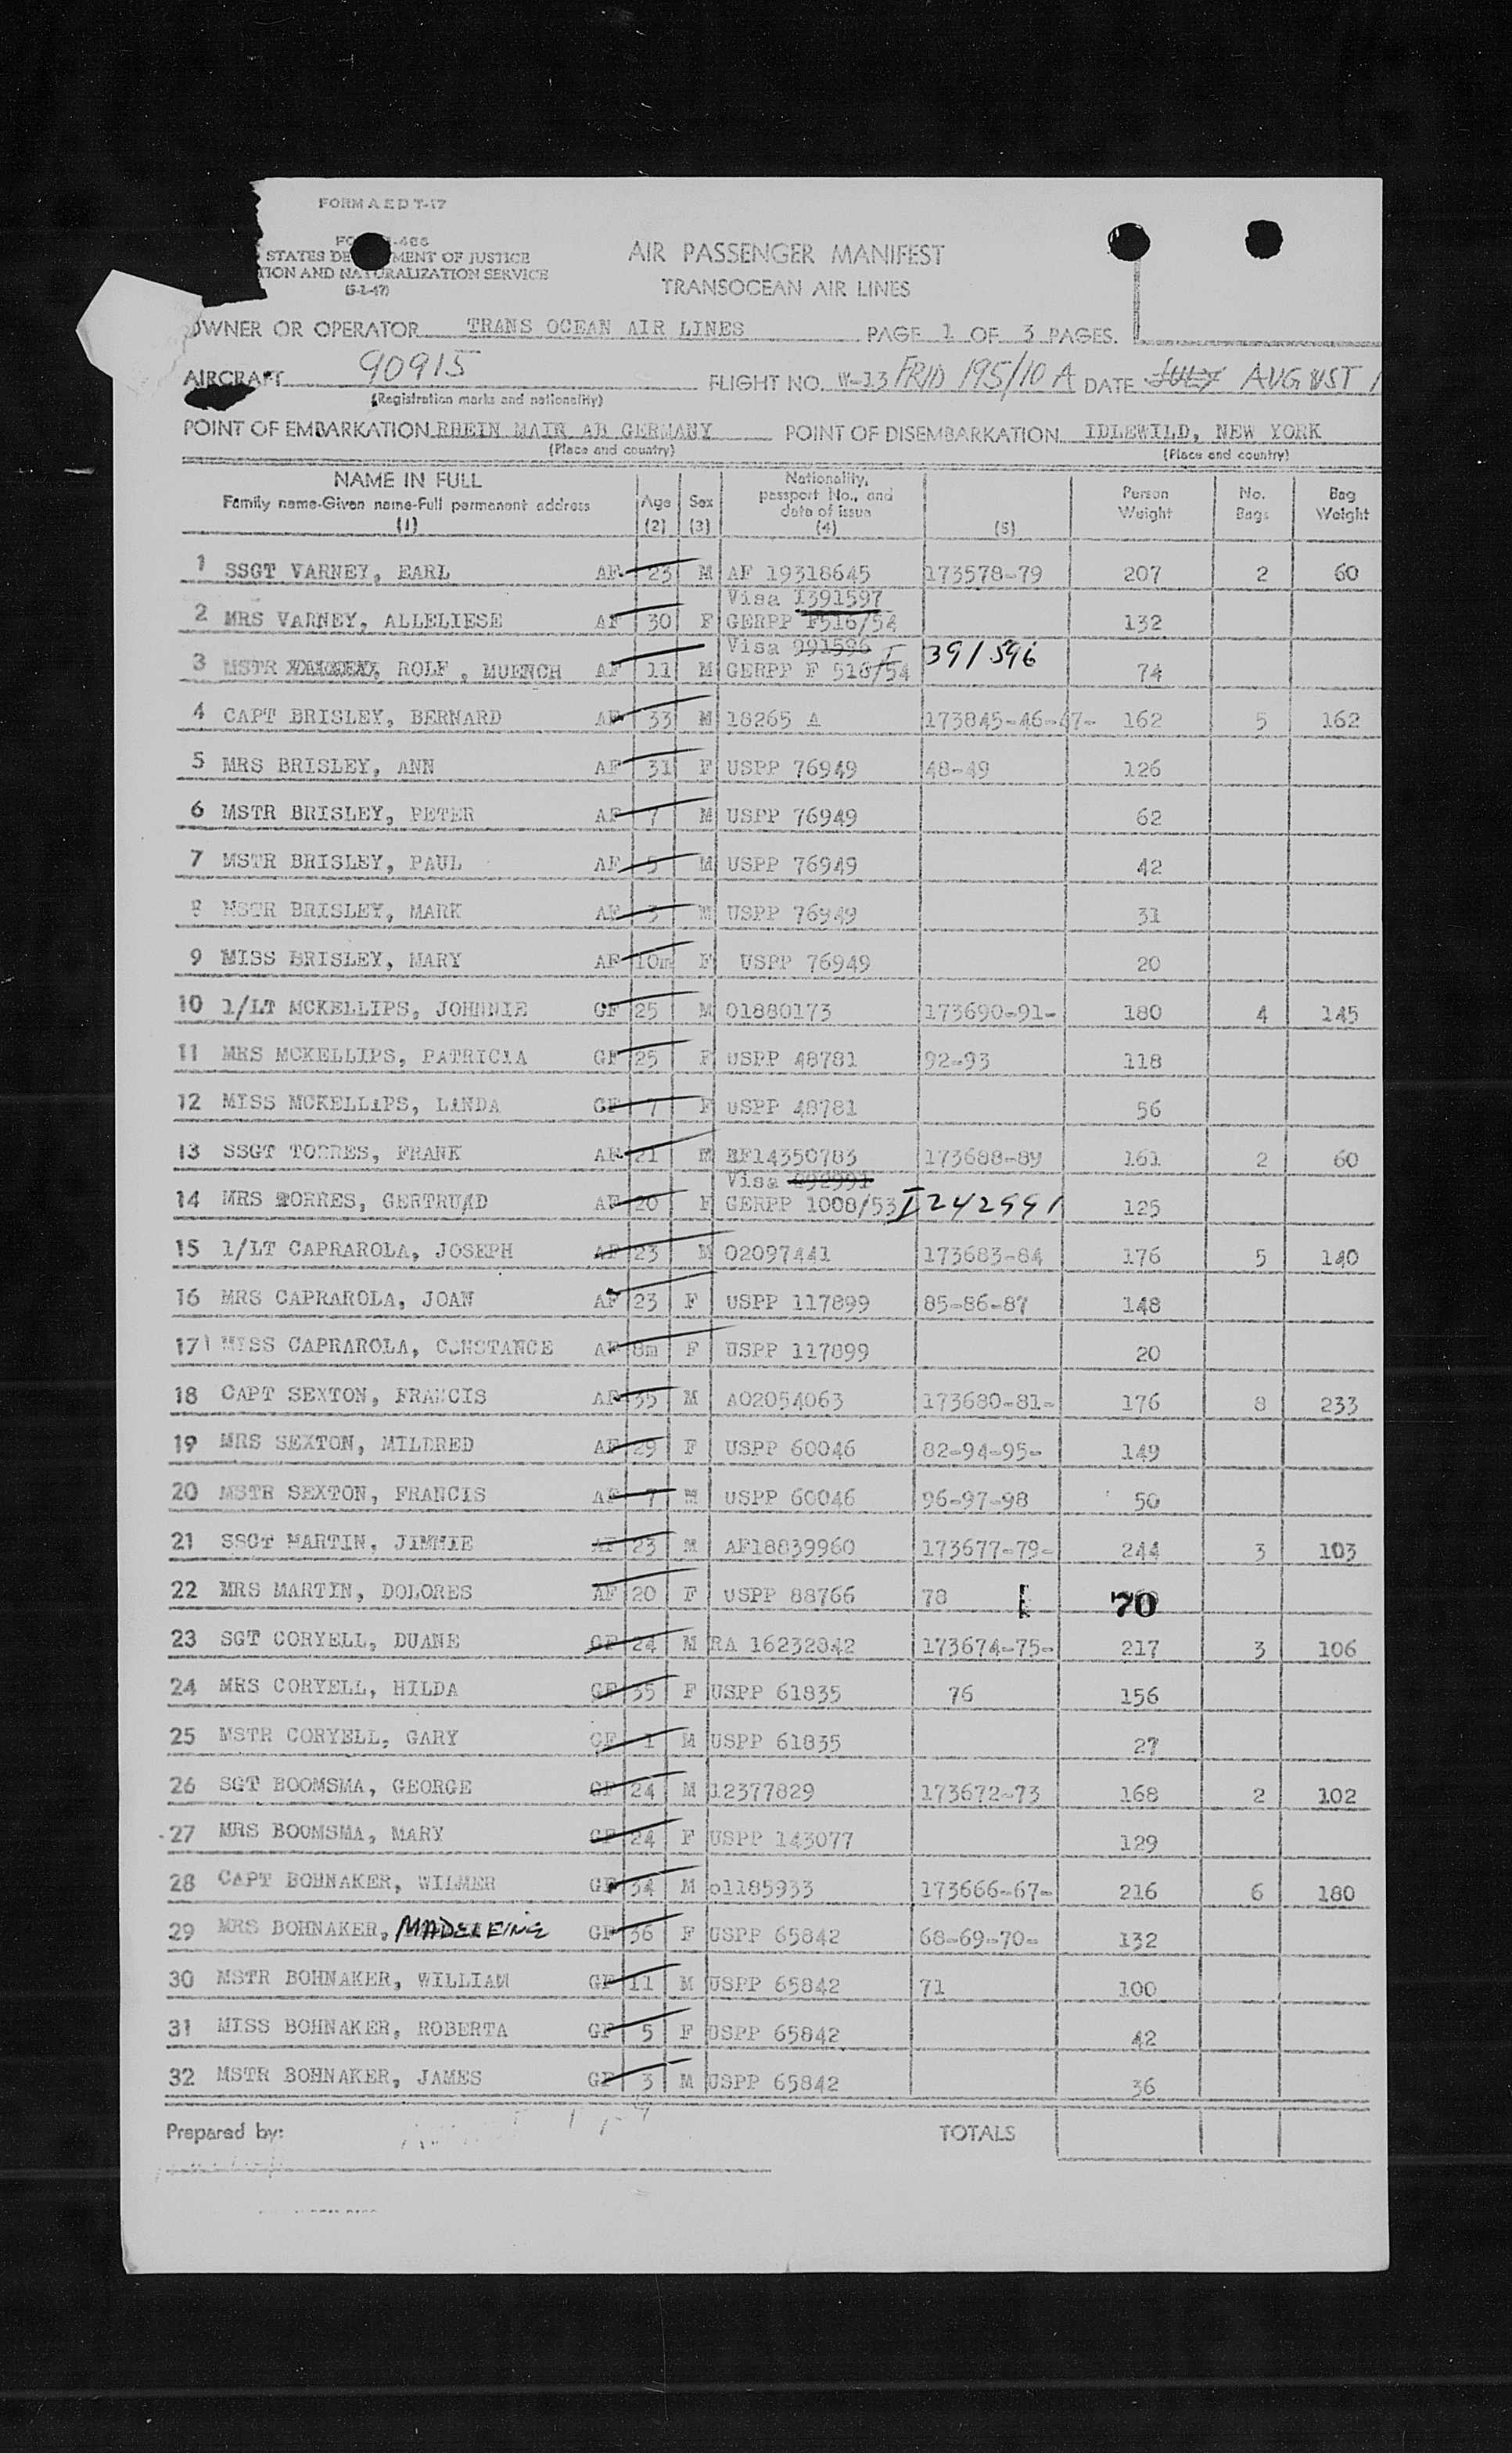 FORM A E D T-17
STATES DE MENT OF JUSTICE
TION AND NATURALIZATION SERVICE
(5-1-47)
AIR PASSENGER MANIFEST
TRANSOCEAN AIR LINES
OWNER OR OPERATOR TRANS OCEAN AIR LINES PAGE 1 OF 3 PAGES.
AIRCRAFT 90915 FLIGHT NO. W-13 FRID 195/10 A DATE JULY AUGUST 1
(Registration marks and nationality)
POINT OF EMBARKATION RHEIN MAIN AB GERMANY POINT OF DISEMBARKATION IDLEWILD, NEW YORK
(Place and country) (Place and country)
NAME IN FULL
Family name-Given name-Full permanent address
(1)
Age
(2)
Sex
(3)
Nationality,
passport No., and
date of issue
(4)
(5)
Person
Weight
No.
Bags
Bag
Weight
1 SSGT VARNEY, EARL AF 23 M AF 19318645 173578-79 207 2 60
Visa I391597
2 MRS VARNEY, ALLELIESE AF 30 F GERPP F516/54 132
Visa 991596 I 391596
3 MSTR ROLF, MUENCH AF 11 M GERPP F 516/54 74
4 CAPT BRISLEY, BERNARD AF 33 M 18265 A 173845-46-47- 162 5 162
5 MRS BRISLEY, ANN AF 31 F USPP 76949 48-49 126
6 MSTR BRISLEY, PETER AF 7 M USPP 76949 62
7 MSTR BRISLEY, PAUL AF 5 M USPP 76949 42
8 MSTR BRISLEY, MARK AF 3 M USPP 76949 31
9 MISS BRISLEY, MARY AF 10m F USPP 76949 20
10 1/LT MCKELLIPS, JOHNNIE GF 25 M 01880173 173690-91- 180 4 145
11 MRS MCKELLIPS, PATRICIA GF 25 F USPP 48781 92-93 118
12 MISS MCKELLIPS, LINDA GF 7 F USPP 48781 56
13 SSGT TORRES, FRANK AF 21 M AF14350783 173688-89 161 2 60
Visa
14 MRS TORRES, GERTRUAD AF 20 F GERPP 1008/53 I242991 125
15 1/LT CAPRAROLA, JOSEPH AF 23 M 02097441 173683-84 176 5 140
16 MRS CAPRAROLA, JOAN AF 23 F USPP 117899 85-86-87 148
17 MISS CAPRAROLA, CONSTANCE AF 8m F USPP 117899 20
18 CAPT SEXTON, FRANCIS AF 35 M AO2054063 173680-81- 176 8 233
19 MRS SEXTON, MILDRED AF 29 F USPP 60046 82-94-95- 149
20 MSTR SEXTON, FRANCIS AF 7 M USPP 60046 96-97-98 50
21 SSGT MARTIN, JIMMIE AF 23 M AF18839960 173677-79- 244 3 103
22 MRS MARTIN, DOLORES AF 20 F USPP 88766 78 70
23 SGT CORYELL, DUANE GF 24 M RA 16232842 173674-75- 217 3 106
24 MRS CORYELL, HILDA GF 35 F USPP 61835 76 156
25 MSTR CORYELL, GARY GF 1 M USPP 61835 27
26 SGT BOOMSMA, GEORGE GF 24 M 12377829 173672-73 168 2 102
27 MRS BOOMSMA, MARY GF 24 F USPP 143077 129
28 CAPT BOHNAKER, WILMER GF 34 M o1185933 173666-67- 216 6 180
29 MRS BOHNAKER, MADELEINE GF 36 F USPP 65842 68-69-70- 132
30 MSTR BOHNAKER, WILLIAM GF 11 M USPP 65842 71 100
31 MISS BOHNAKER, ROBERTA GF 5 F USPP 65842 42
32 MSTR BOHNAKER, JAMES GF 3 M USPP 65842 36
Prepared by: TOTALS